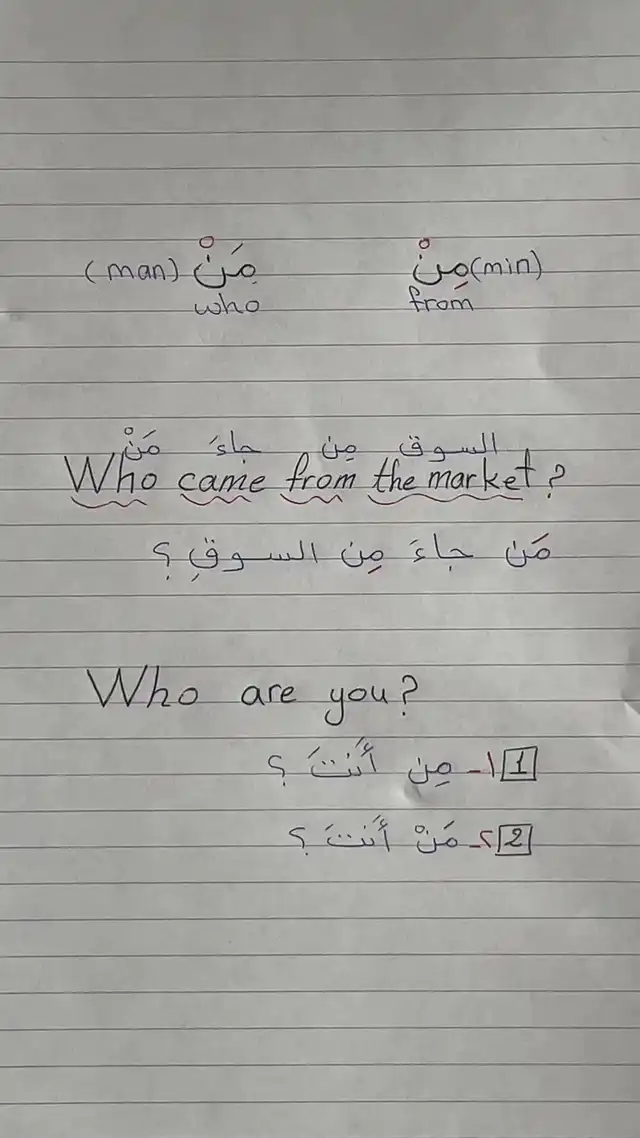 (man) مَنْ مِنْ (min)
who from
السوق مِن جاءَ مَنْ
Who came from the market?
مَن جاءَ مِن السوقِ ؟
Who are you?
1 ١- مِن أَنتَ ؟
2 ٢- مَنْ أَنتَ ؟